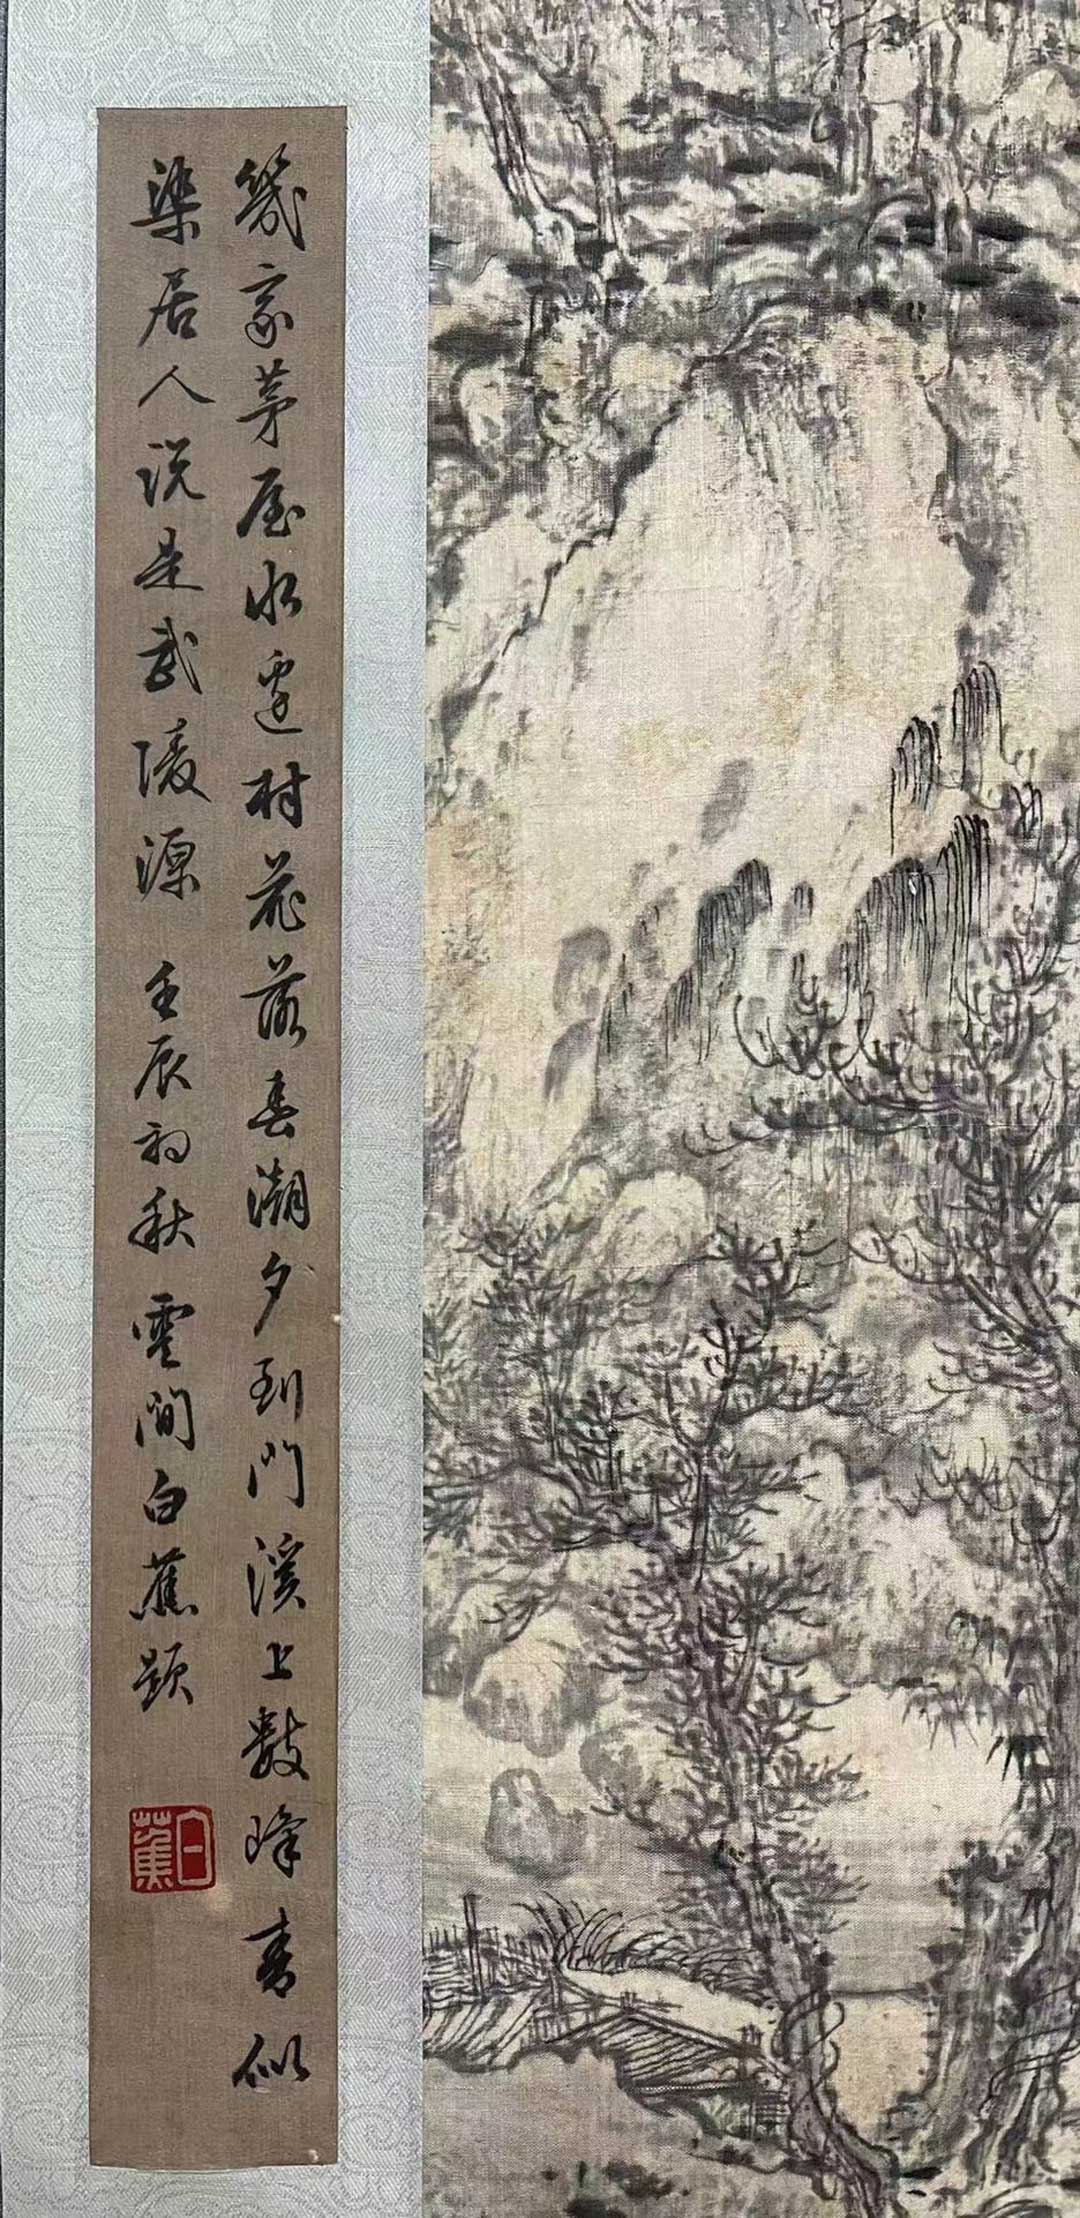 幾家茅屋水邊村花落春潮夕到門溪上數峰青似
染居人說是武陵源 壬辰初秋 雲間白蕉題
白蕉